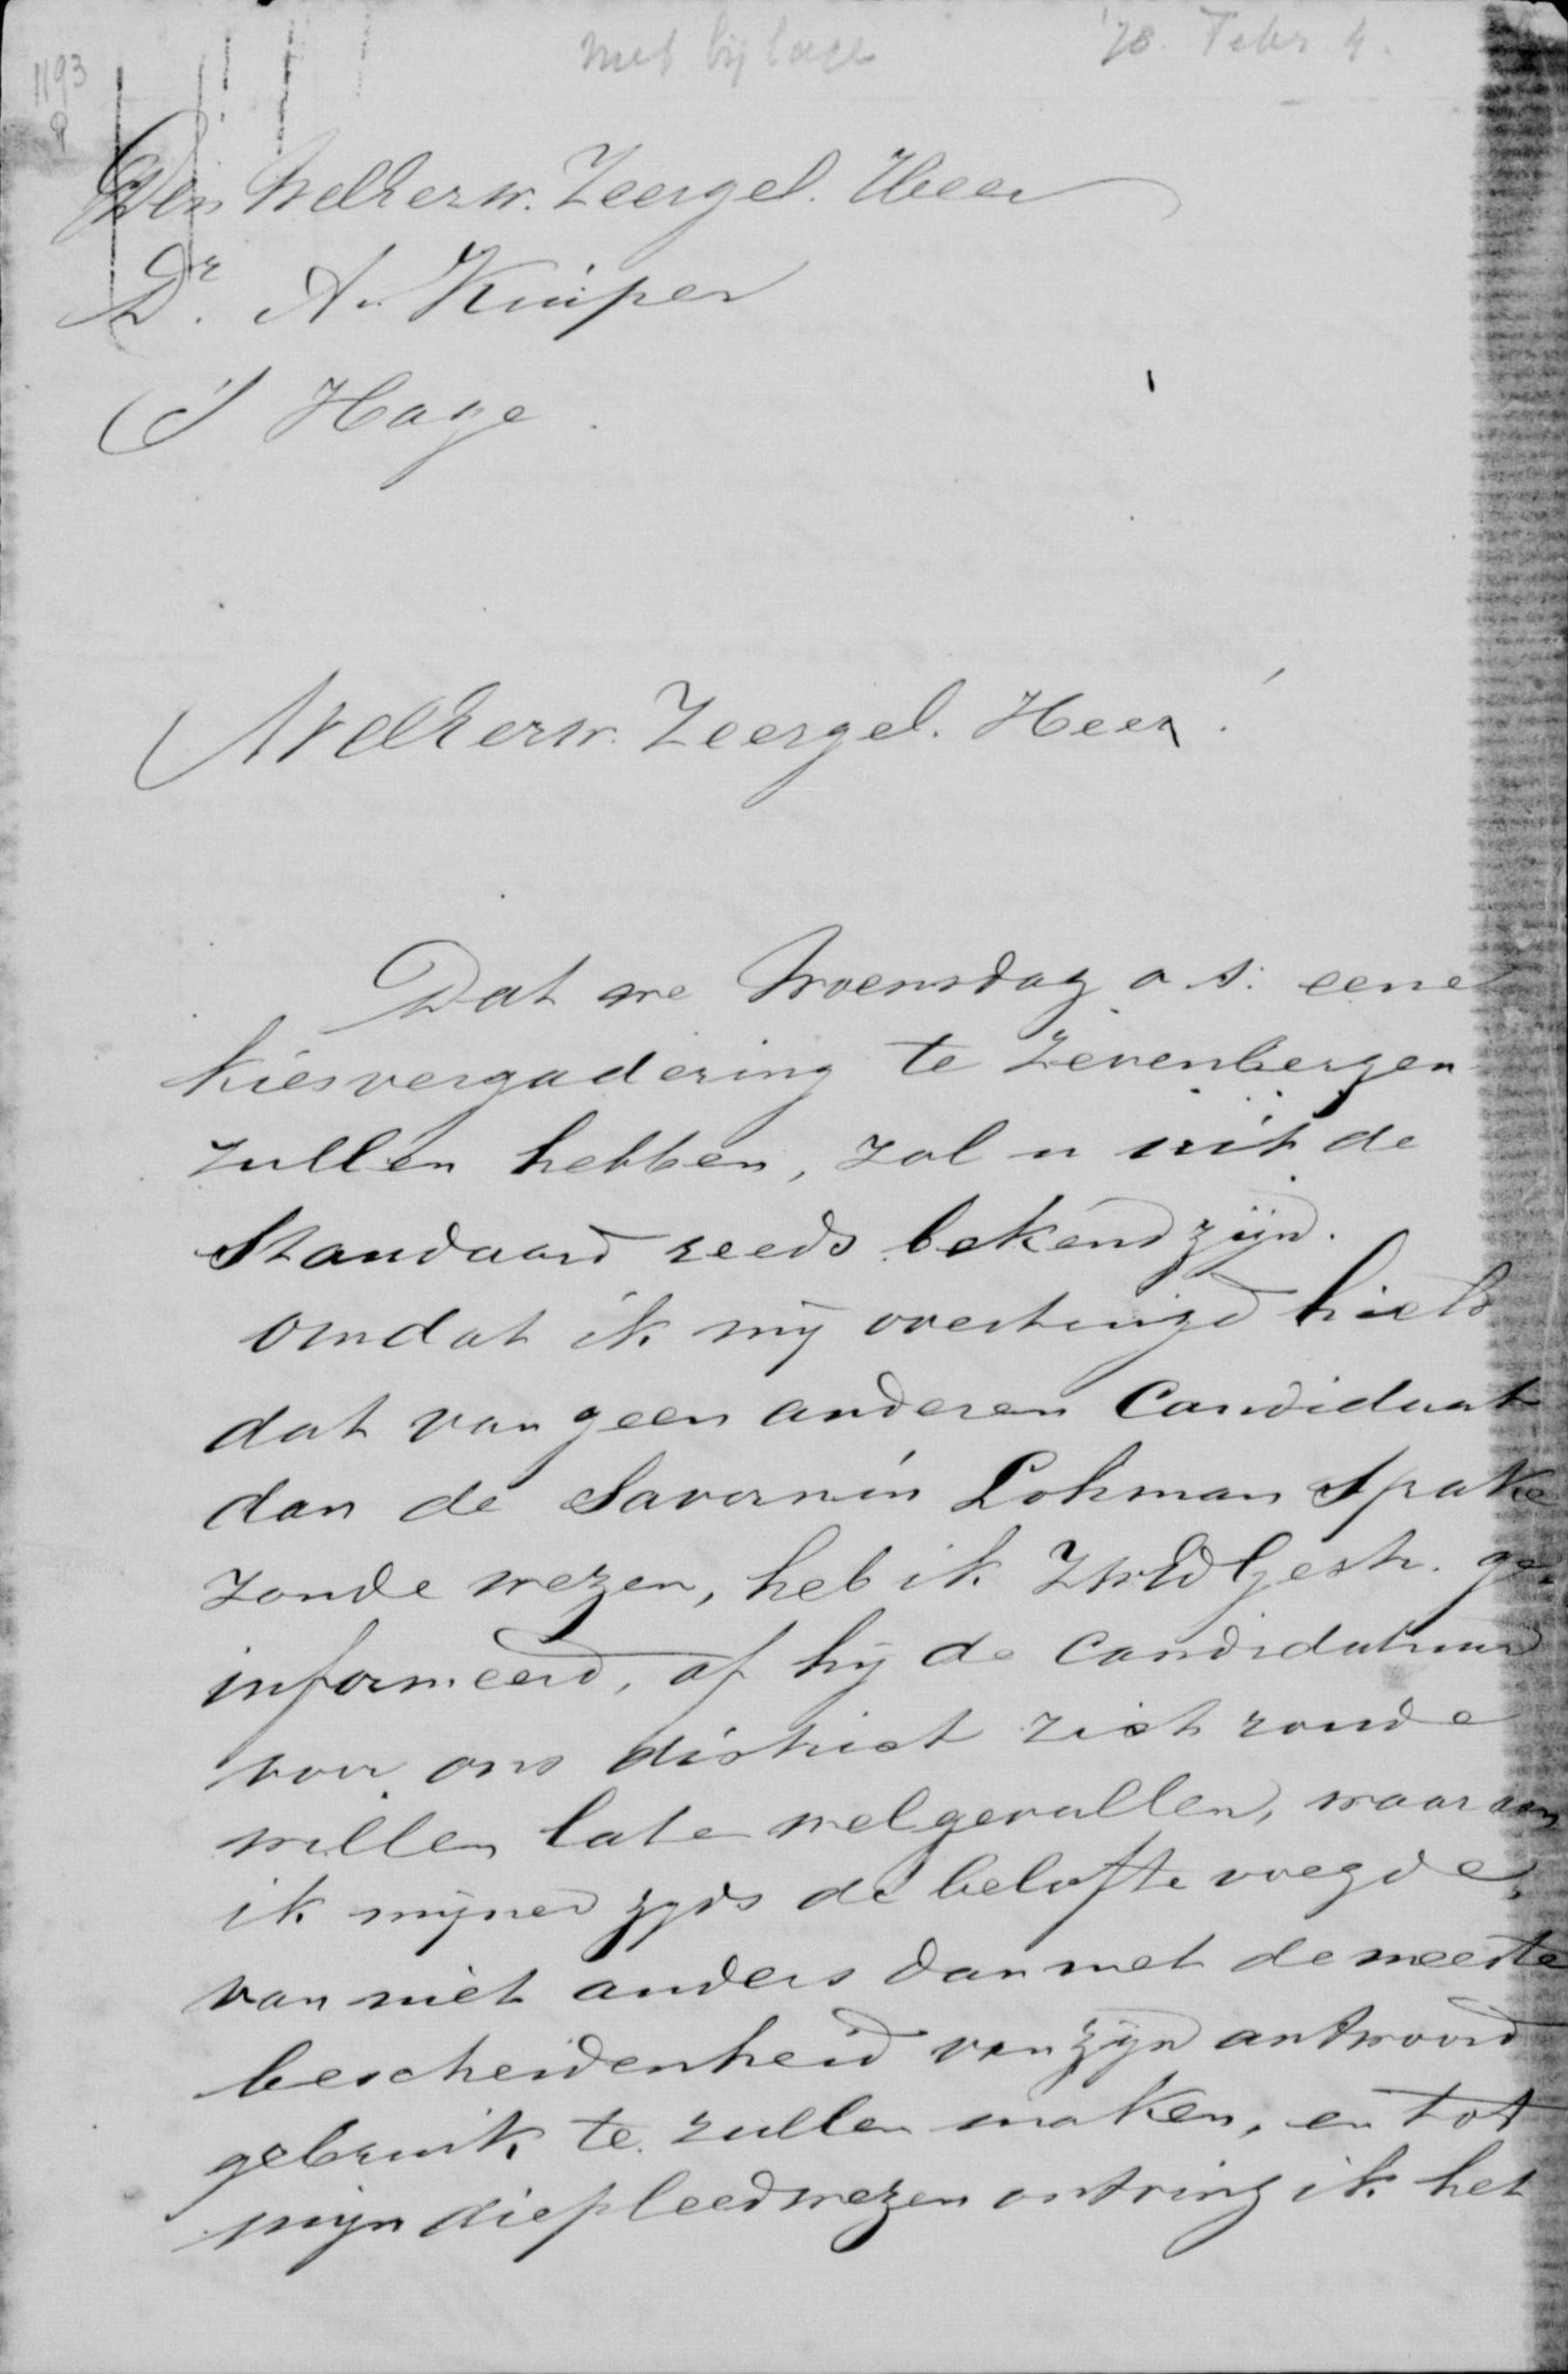 1193
met bijlage
'78. Febr. 4.
Den WelEerw. Zeergel. Heer
Dr. A. Kuiper
S' Hage.
WelEerw. Zeergel. Heer!
Dat we Woensdag a.s. eene
kiesvergadering te Zevenbergen
zullen hebben, zal u uit de
Standaard reeds bekend zijn.
Omdat ik mij overtuigd hield
dat van geen anderen Candidaat
dan de Savornin Lohman sprake
zoude wezen, heb ik ZWEdGestr. ge-
informeerd, of hij de Candidatuur
voor ons district zich zoude
willen late welgevallen, waar aan
ik mijner zijds de belofte voegde,
van niet anders dan met de meeste
bescheidenheid van zijn antwoord
gebruik te zullen maken, en tot
mijn diep leedwezen ontving ik het